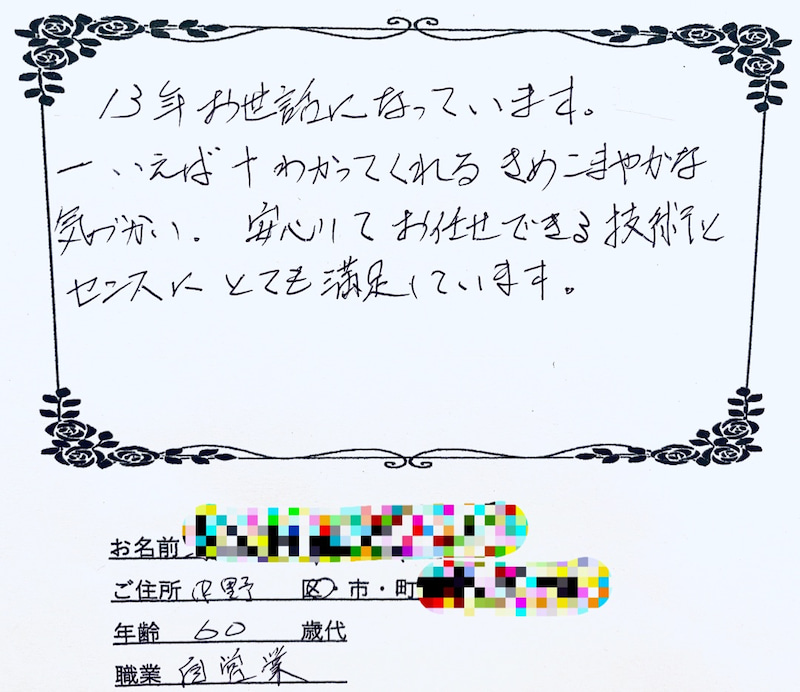 13年お世話になっています。
一いえば十わかってくれるきめこまやかな
気づかい。安心してお任せできる技術と
センスにとても満足しています。
お名前
ご住所 野 区・市・町
年齢 60 歳代
職業 自営業